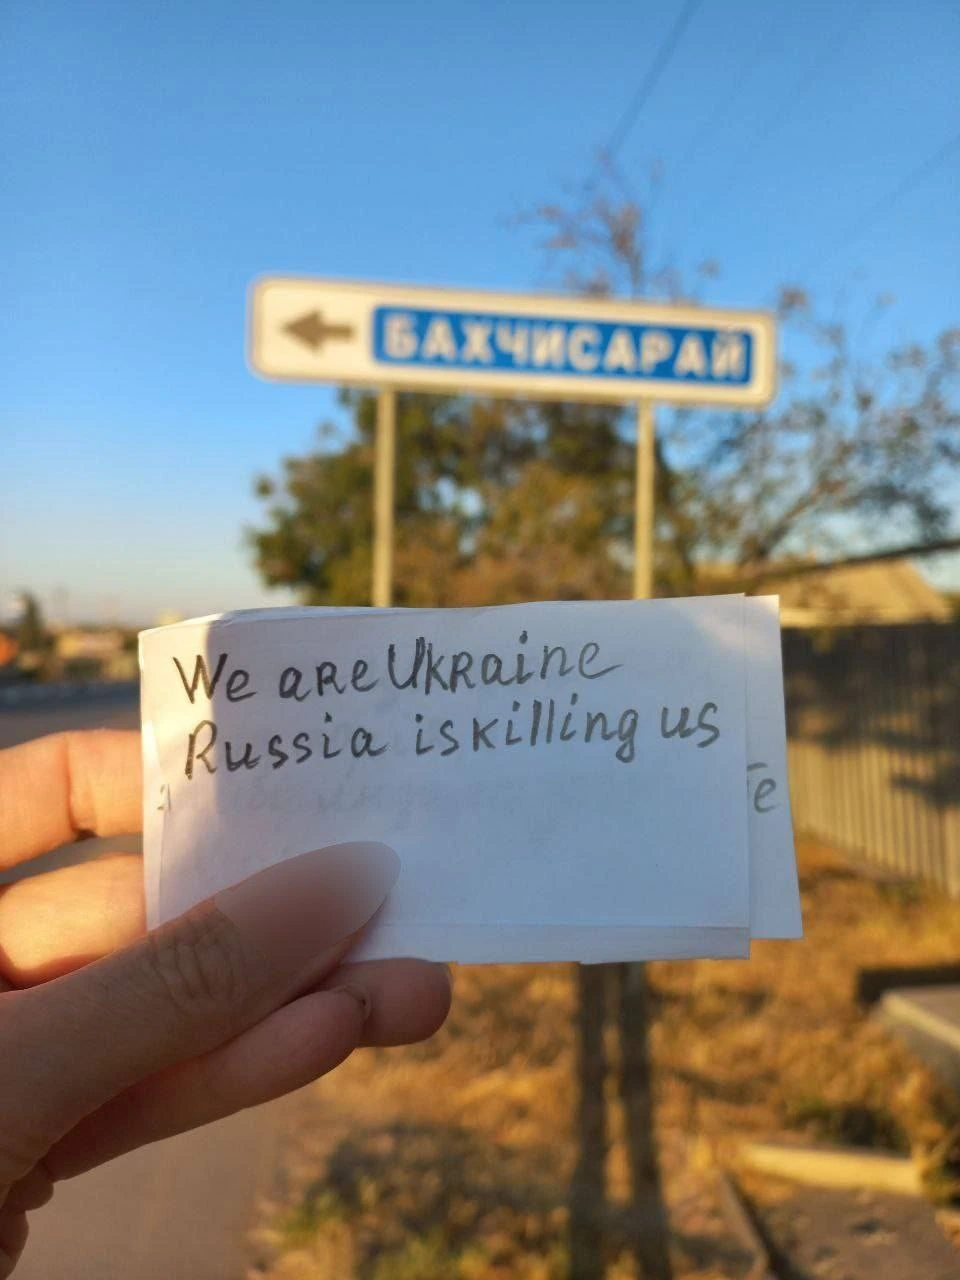 БАХЧИСАРАЙ
We are Ukraine
Russia is killing us